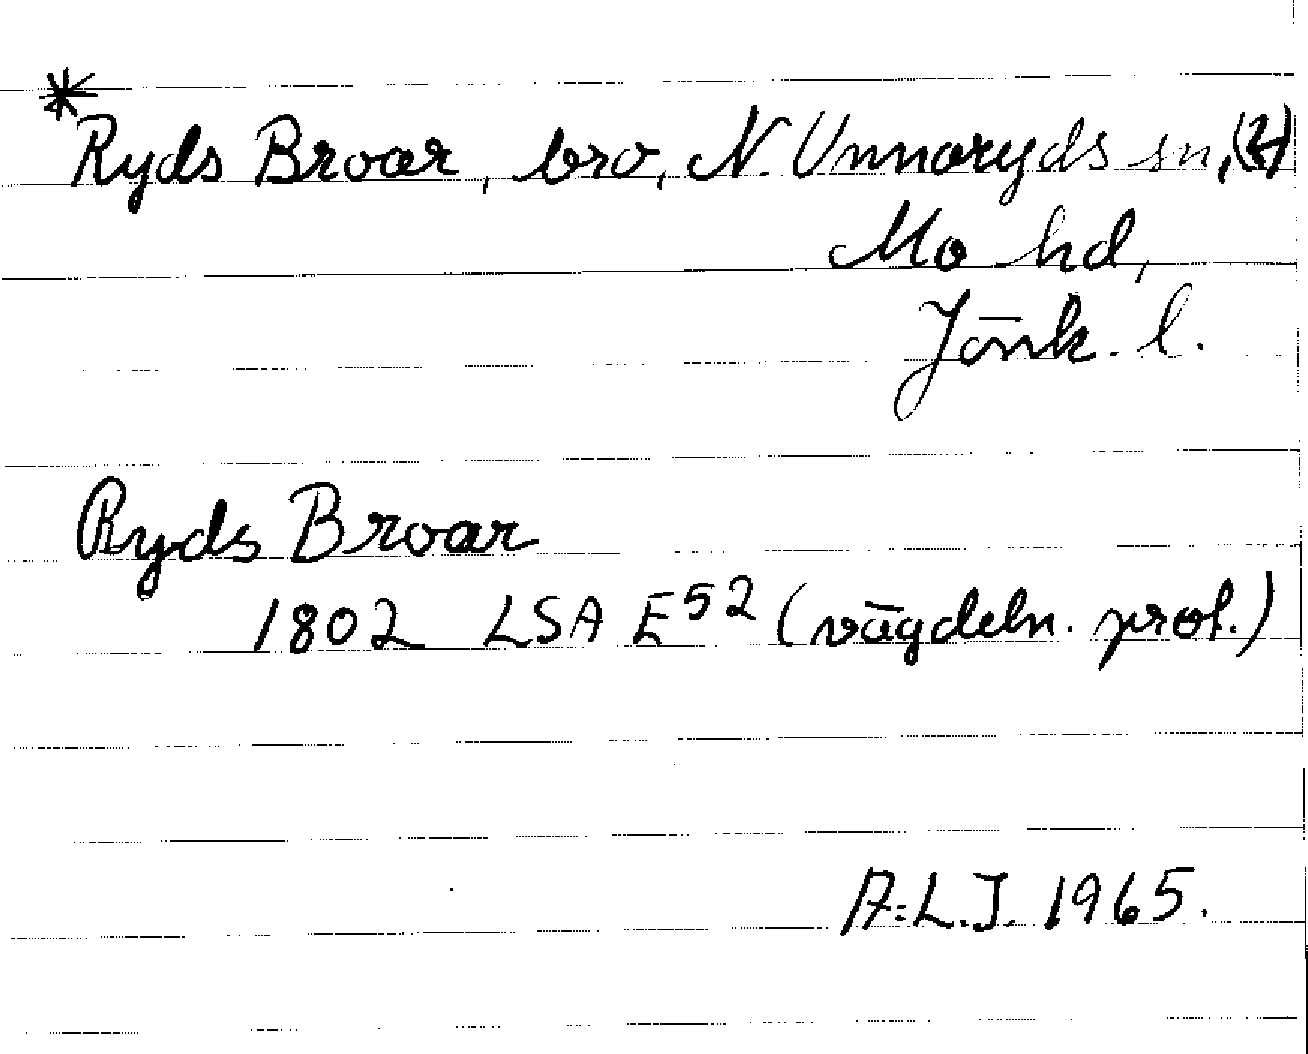 *Ryds Broar, bro, N. Unnaryds sn, (2)
Mo hd,
Jönk. l.
Ryds Broar
1802 LSA E⁵² (vägdeln. prot.)
A-L.J. 1965.